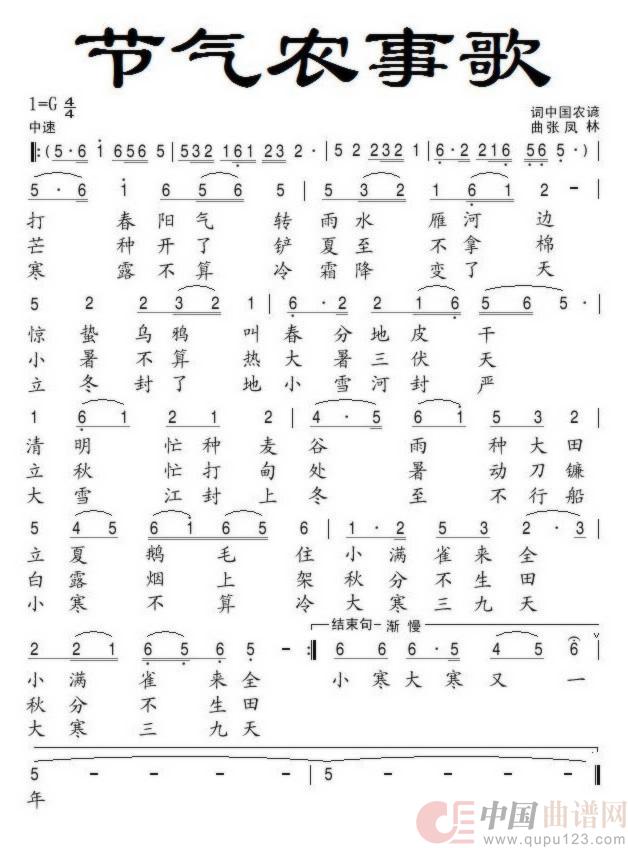 节气农事歌
1=G 4/4
词中国农谚
中速
曲张凤林
‖:(5·6 i 656 5 | 532 161 23 · | 5 2 232 1 | 6·2 216 56 5·) |
5 · 6 i 6 5 6 5 | 5 3 2 1 6 1 2 - |
打春阳气转雨水雁河边
芒种开了铲夏至不拿棉
寒露不算冷霜降变了天
5 2 2 3 2 1 | 6 · 2 2 1 6 5 6 5 · |
惊蛰乌鸦叫春分地皮干
小暑不算热大暑三伏天
立冬封了地小雪河封严
1 6 1 2 1 2 | 4 · 5 6 1 5 3 2
清明忙种麦谷雨种大田
立秋忙打甸处暑动刀镰
大雪江封上冬至不行船
5 4 5 6 1 6 5 5 | 1 · 2 5 3 2 · 3
立夏鹅毛住小满雀来全
白露烟上架秋分不生田
小寒不算冷大寒三九天
结束句- 渐慢
2 2 1 6 5 6 5 - :‖ 6 6 6 · 5 4 5 6
小满雀来全 小寒大寒又一
秋分不生田
大寒三九天
5 - - - | 5 - - - ‖
年
中国曲谱网
www.qupu123.com